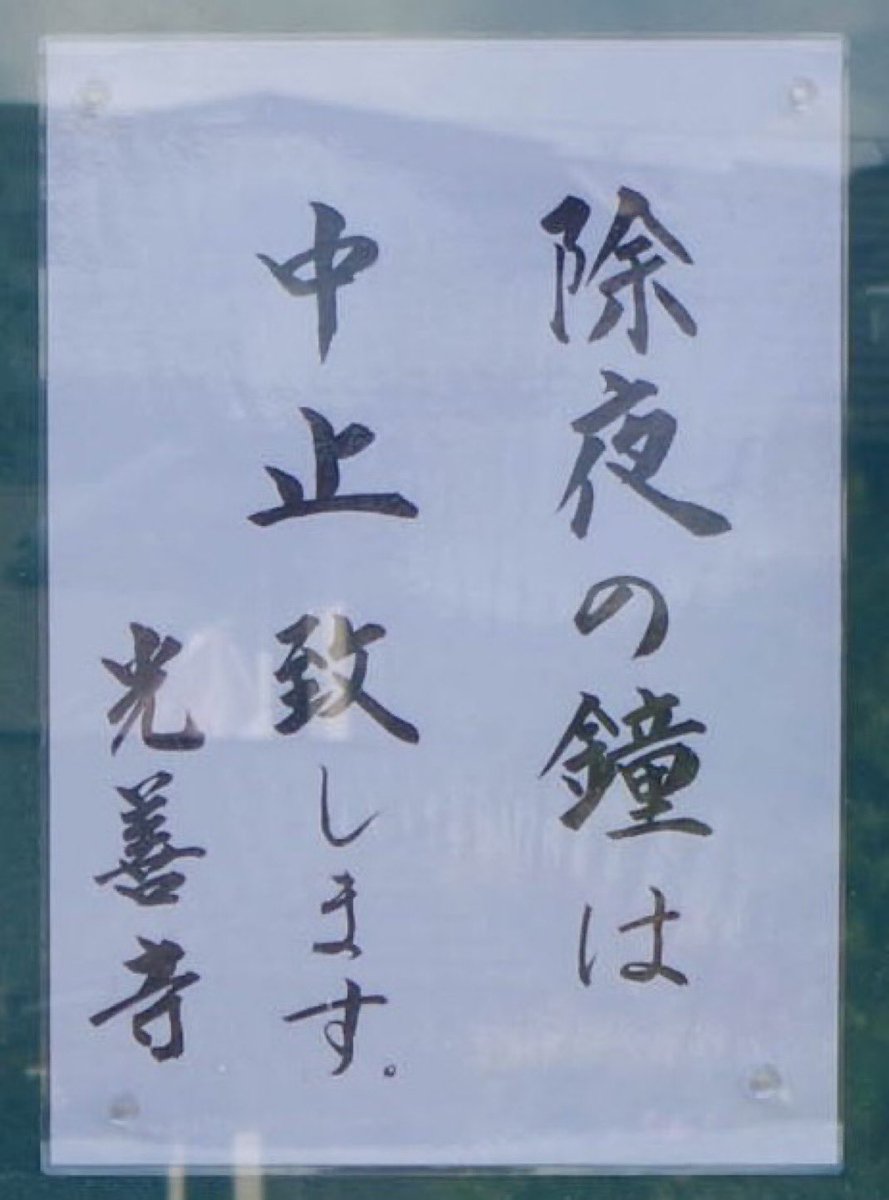 除夜の鐘は
中止致します。
光善寺